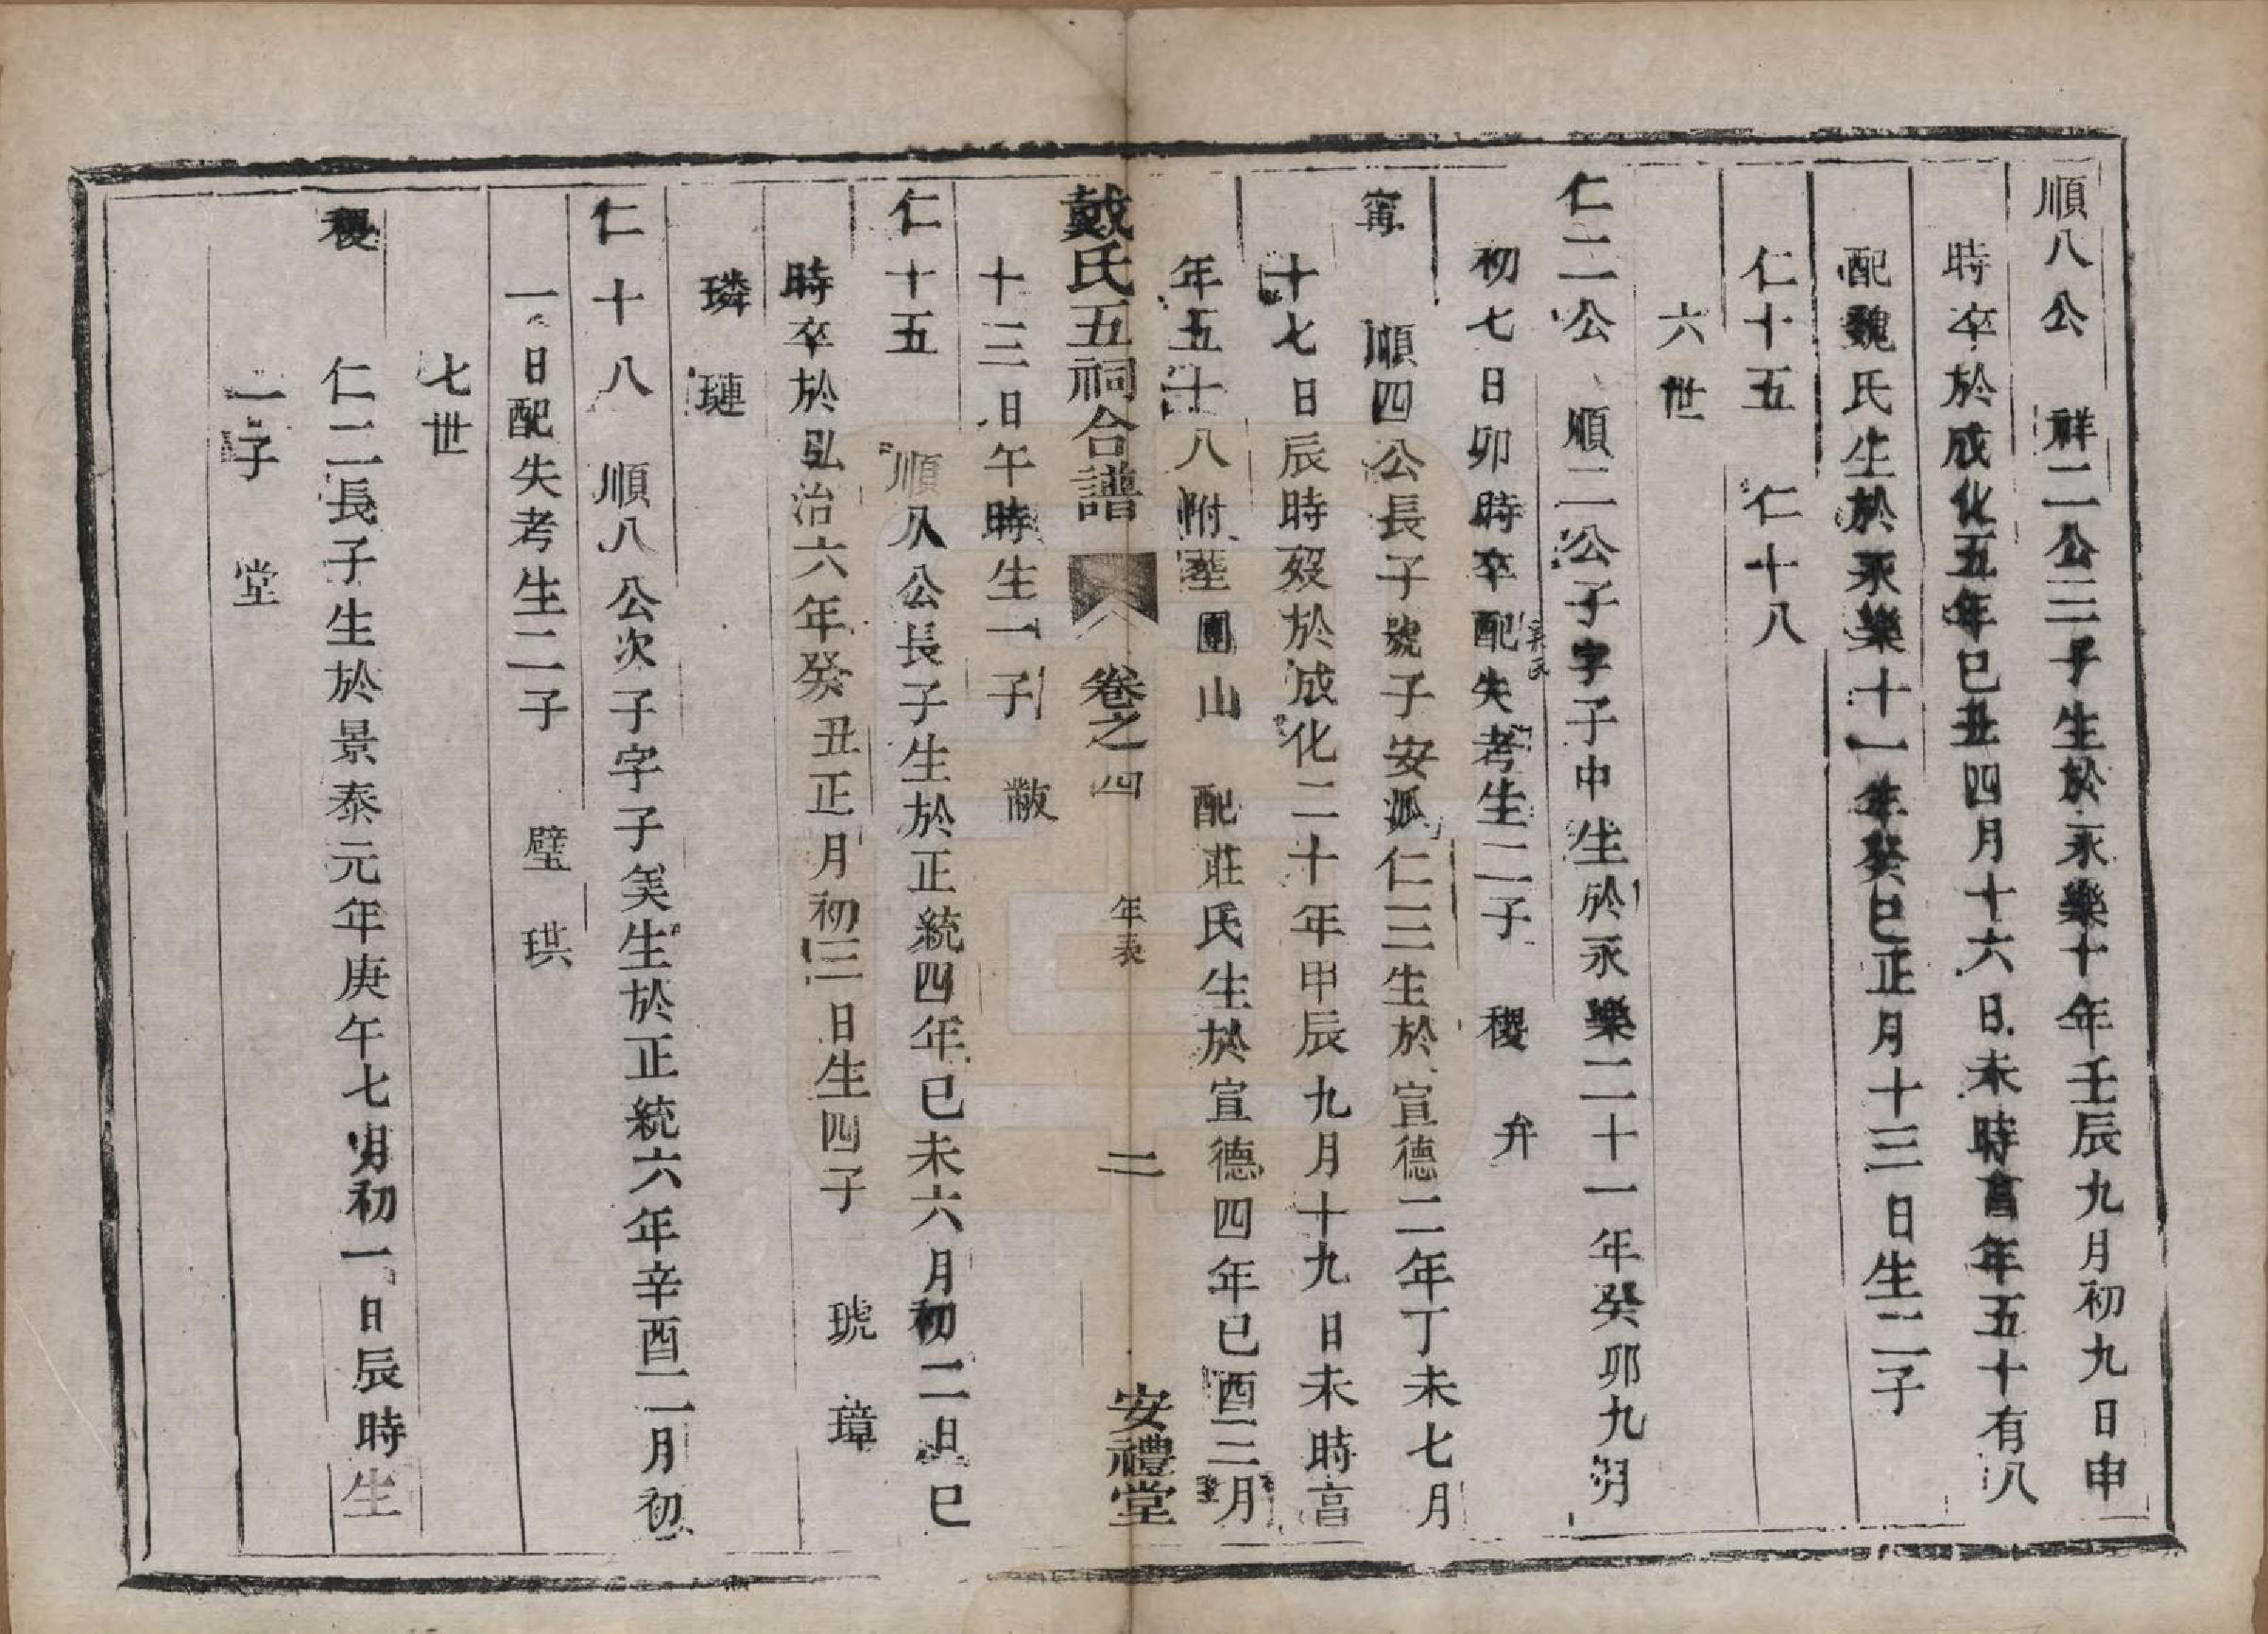 順八公 祥二公三子生於永樂十年壬辰九月初九日申
時卒於成化五年巳丑四月十六日未時亯年五十有八
配魏氏生於永樂十一年癸巳正月十三日生二子
仁十五 仁十八
六世
仁二公 順二公子字子中生於永樂二十一年癸卯九月
初七日卯時卒配失考生二子 稷 弁
甯 順四公長子號子安派仁三生於宣德二年丁未七月
十七日辰時歿於成化二十年甲辰九月十九日未時亯
年五十八附塟團山 配莊氏生於宣德四年巳酉三月
戴氏五祠合譜 卷之四 年表 二 安禮堂
十三日午時生一子 敝
仁十五 順八公長子生於正統四年已未六月初二日巳
時卒於弘治六年癸丑正月初三日生四子 琥 璋
璘 璉
仁十八 順八公次子字子美生於正統六年辛酉二月初
一日配失考生二子 璧 珙
七世
稷 仁二長子生於景泰元年庚午七月初一日辰時生
一子 堂